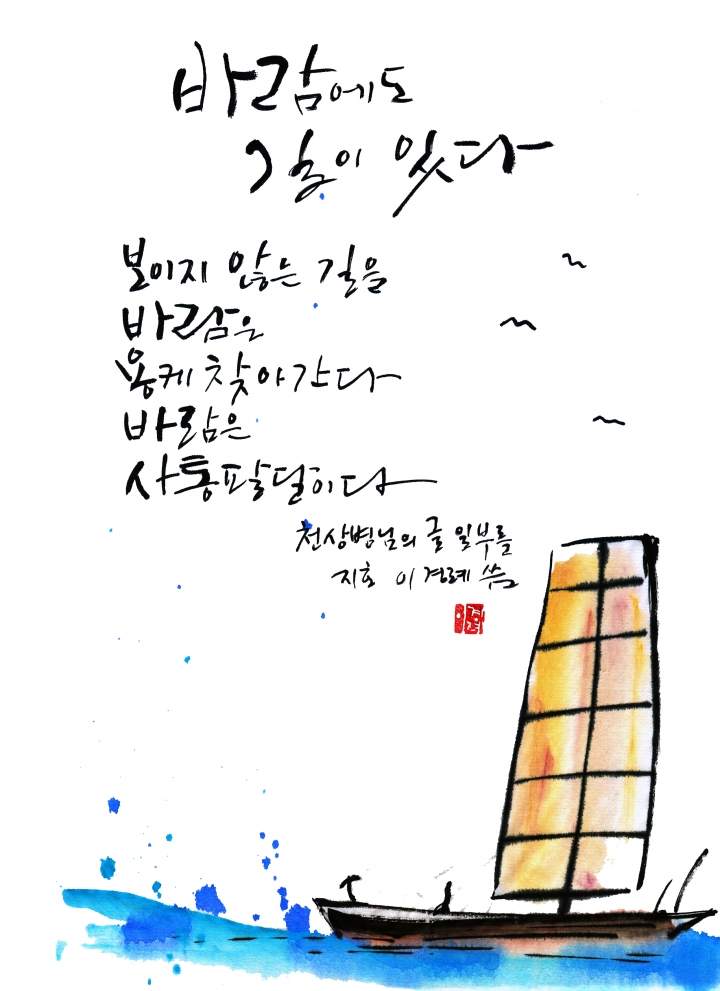 바람에도
길이 있다
보이지 않는 길을
바람은
용케 찾아간다
바람은
사통팔달이다
천상병님의 글 일부를
지호 이경례 씀